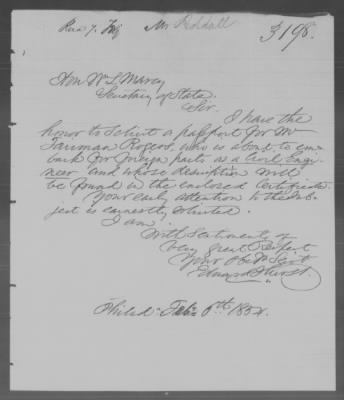 Recd 7. Feby Mr Riddall 3198.
Hon Wm L Marcy
Secretary of State
Sir.
I have the
honor to solicit a passport for Mr
Truman Rogers, who is about to em-
bark for foreign parts as a Civil Engi-
neer and whose description will
be found in the enclosed certificate.
Your early attention to the sub-
ject is earnestly solicited.
I am
With Sentiments of
Very great respect
Your Obt Servt
Edward Hurst
Philada Feby 6th 1854.